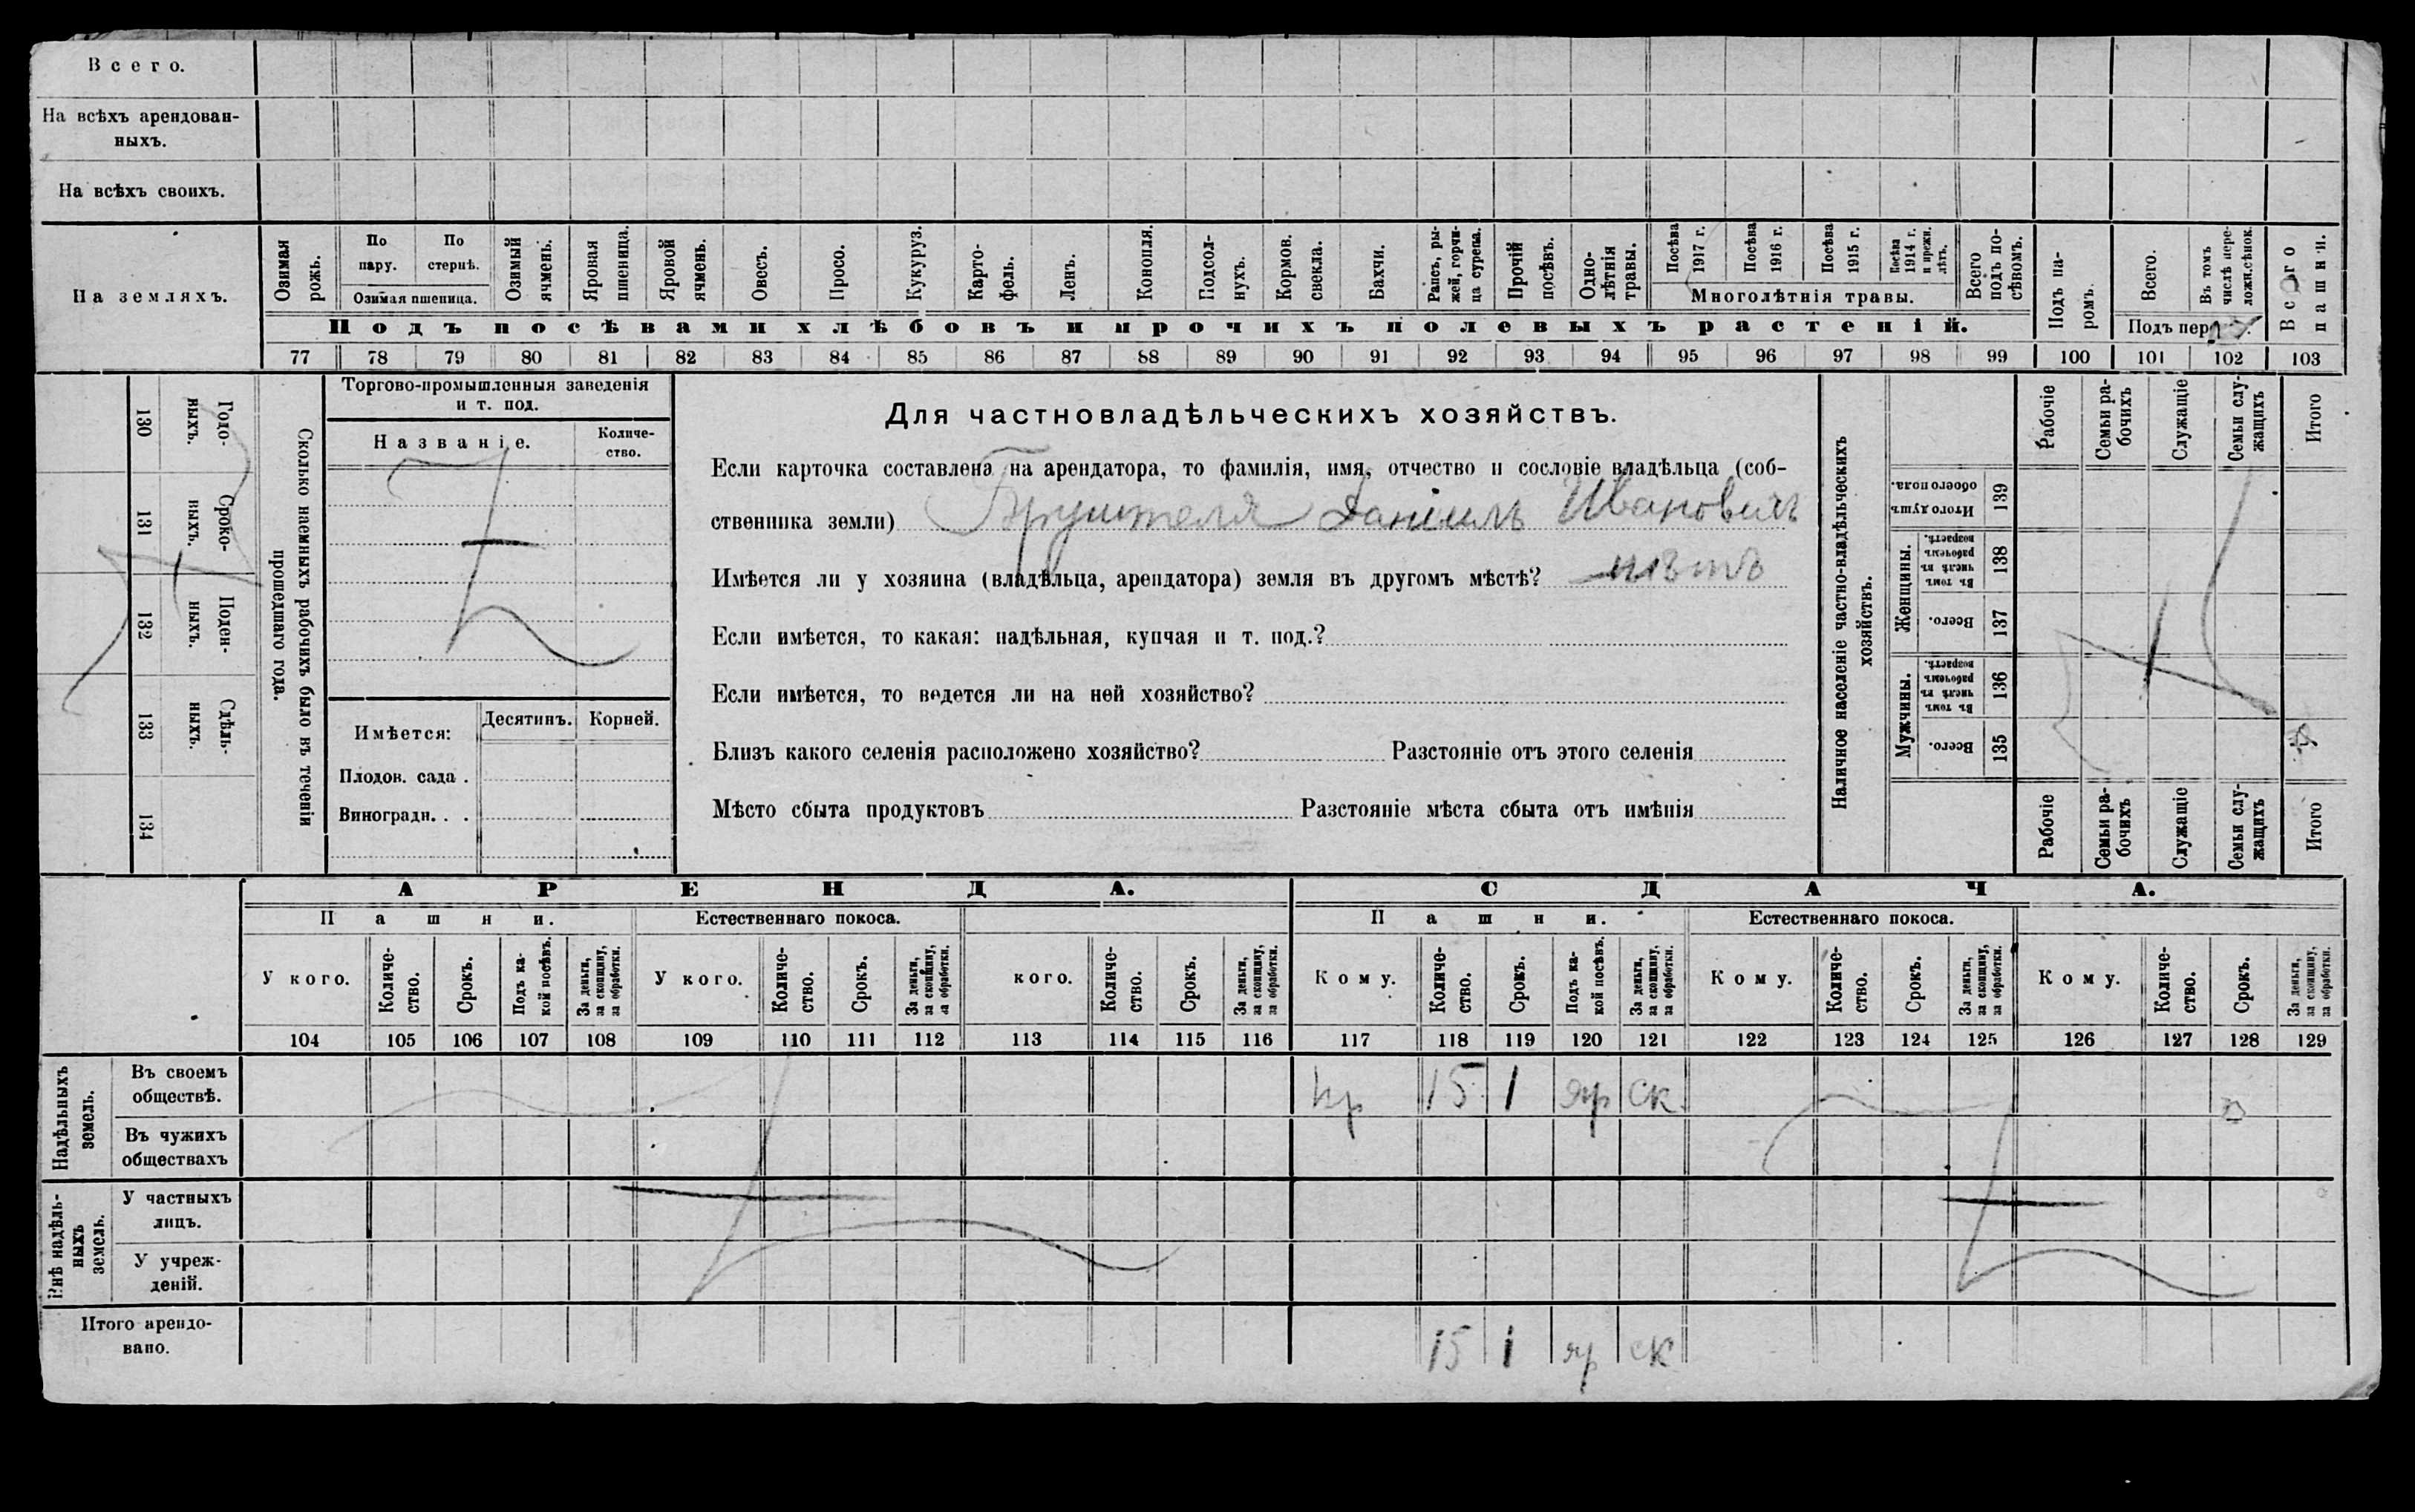 Всего.
На всѣхъ арендован-
ныхъ.
На всѣхъ своихъ.
На земляхъ.
Озимая рожь.
По пару.
По стернѣ.
Озимая пшеница.
Озимый ячмень.
Яровая пшеница.
Яровой ячмень.
Овесъ.
Просо.
Кукуруз.
Карто-
фель.
Ленъ.
Конопля.
Подсол-
нухъ.
Кормов. свекла.
Бахчи.
Рапсъ, ры-
жей, горчи-
ца сурепа.
Прочій посѣвъ.
Одно-
лѣтнія травы.
Посѣва 1917 г.
Посѣва 1916 г.
Посѣва 1915 г.
Посѣва 1914 г. и прежн. лѣтъ.
Многолѣтнія травы.
Всего подъ по-
сѣвомъ.
Подъ посѣвами хлѣбовъ и прочихъ полевыхъ растеній.
Подъ па-
ромъ.
Всего.
Въ томъ числѣ пере-
ложн.сѣнок.
Всего пашни.
77 78 79 80 81 82 83 84 85 86 87 88 89 90 91 92 93 94 95 96 97 98 99 100 101 102 103
130 Годо-
выхъ.
131 Сроко-
ныхъ.
132 Поден-
ныхъ.
133 Сдѣль-
ныхъ.
134
Сколько наемныхъ рабочихъ было въ теченіи
прошедшаго года.
Торгово-промышленныя заведенія
и т. под.
Названіе.
Количе-
ство.
Имѣется:
Десятинъ.
Корней.
Плодов. сада .
Виноградн. . .
Для частновладѣльческихъ хозяйствъ.
Если карточка составлена на арендатора, то фамилія, имя, отчество и сословіе владѣльца (соб-
ственника земли) Даніилъ Ивановичъ
Имѣется ли у хозяина (владѣльца, арендатора) земля въ другомъ мѣстѣ? нѣтъ
Если имѣется, то какая: надѣльная, купчая и т. под.?
Если имѣется, то ведется ли на ней хозяйство?
Близъ какого селенія расположено хозяйство? Разстояніе отъ этого селенія
Мѣсто сбыта продуктовъ Разстояніе мѣста сбыта отъ имѣнія
Наличное населеніе частно-владѣльческихъ
хозяйствъ.
Рабочіе
Семьи ра-
бочихъ
Служащіе
Семьи слу-
жащихъ
Итого
Итого душъ обоего пола. 139
Женщины.
Въ томъ числѣ въ рабочемъ возрастѣ. 138
Всего. 137
Мужчины.
Въ томъ числѣ въ рабочемъ возрастѣ. 136
Всего. 135
Рабочіе
Семьи ра-
бочихъ
Служащіе
Семьи слу-
жащихъ
Итого
АРЕНДА.
СДАЧА.
Пашни.
Естественнаго покоса.
Пашни.
Естественнаго покоса.
У кого.
Количе-
ство.
Срокъ.
Подъ ка-
кой посѣвъ.
За деньги, за скопщину, за обработки.
У кого.
Количе-
ство.
Срокъ.
За деньги, за скопщину, за обработки.
кого.
Количе-
ство.
Срокъ.
За деньги, за скопщину, за обработки.
Кому.
Количе-
ство.
Срокъ.
Подъ ка-
кой посѣвъ.
За деньги, за скопщину, за обработки.
Кому.
Количе-
ство.
Срокъ.
За деньги, за скопщину, за обработки.
Кому.
Количе-
ство.
Срокъ.
За деньги, за скопщину, за обработки.
104 105 106 107 108 109 110 111 112 113 114 115 116 117 118 119 120 121 122 123 124 125 126 127 128 129
Надѣльныхъ земель.
Въ своемъ
обществѣ.
кр 15 1 яр ск
Въ чужихъ
обществахъ
Внѣ надѣль-
ныхъ земель.
У частныхъ
лицъ.
У учреж-
деній.
Итого арендо-
вано.
15 1 яр ск